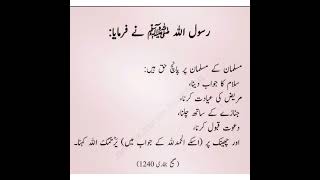 رسول اللہ ﷺ نے فرمایا:
مسلمان کے مسلمان پر پانچ حق ہیں:
سلام کا جواب دینا،
مریض کی عیادت کرنا،
جنازے کے ساتھ چلنا،
دعوت قبول کرنا،
اور چھینک پر (اسکے الحمدللہ کے جواب میں) یَرْحَمُکَ اللہ کہنا۔
(صحیح بخاری 1240)